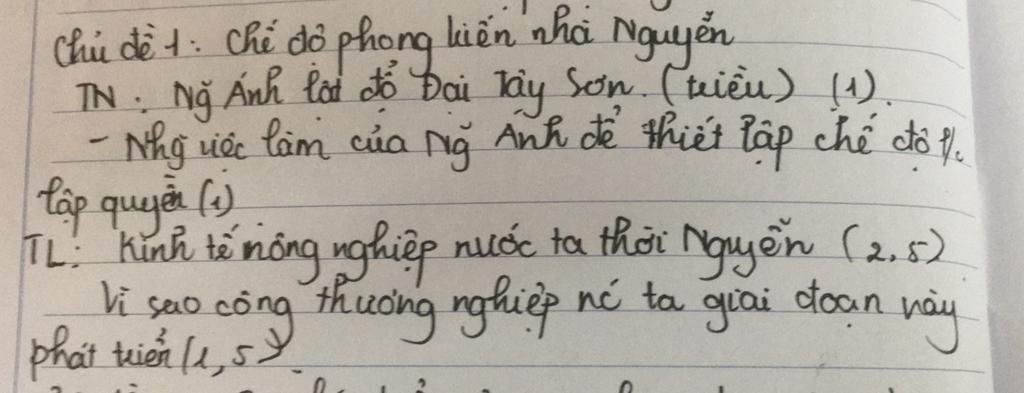 Chủ đề 1: Chế độ phong kiến nhà Nguyễn
TN: Ng̃ Ánh lật đổ Đại Tây Sơn. (triều) (1).
- Nhg̃ việc làm của Ng̃ Ánh để thiết lập chế độ
tập quyền (1)
TL: Kinh tế nông nghiệp nước ta thời Nguyễn (2,5)
Vì sao công thương nghiệp nc ta giai đoạn này
phát triển (1,5)